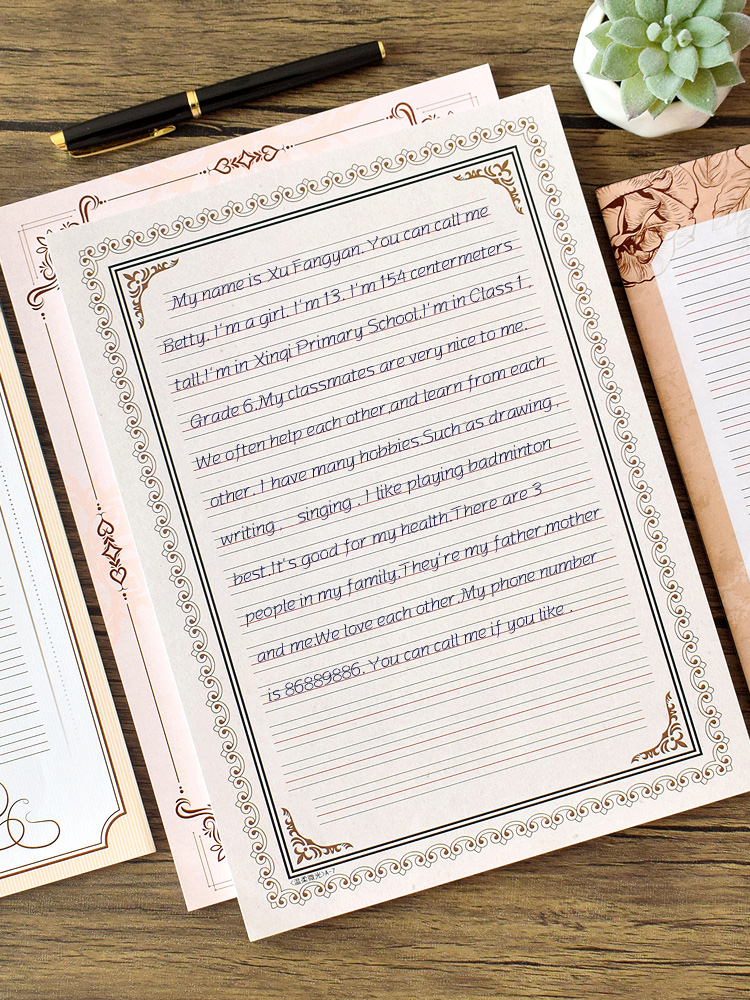 My name is Xu Fangyan. You can call me
Betty. I'm a girl. I'm 13. I'm 154 centermeters
tall.I'm in Xinqi Primary School.I'm in Class 1 .
Grade 6.My classmates are very nice to me.
We often help each other,and learn from each
other. I have many hobbies.Such as drawing .
writing . singing . I like playing badminton
best.It's good for my health.There are 3
people in my family.They're my father,mother
and me.We love each other.My phone number
is 86889886. You can call me if you like .
《温柔微光》A-7